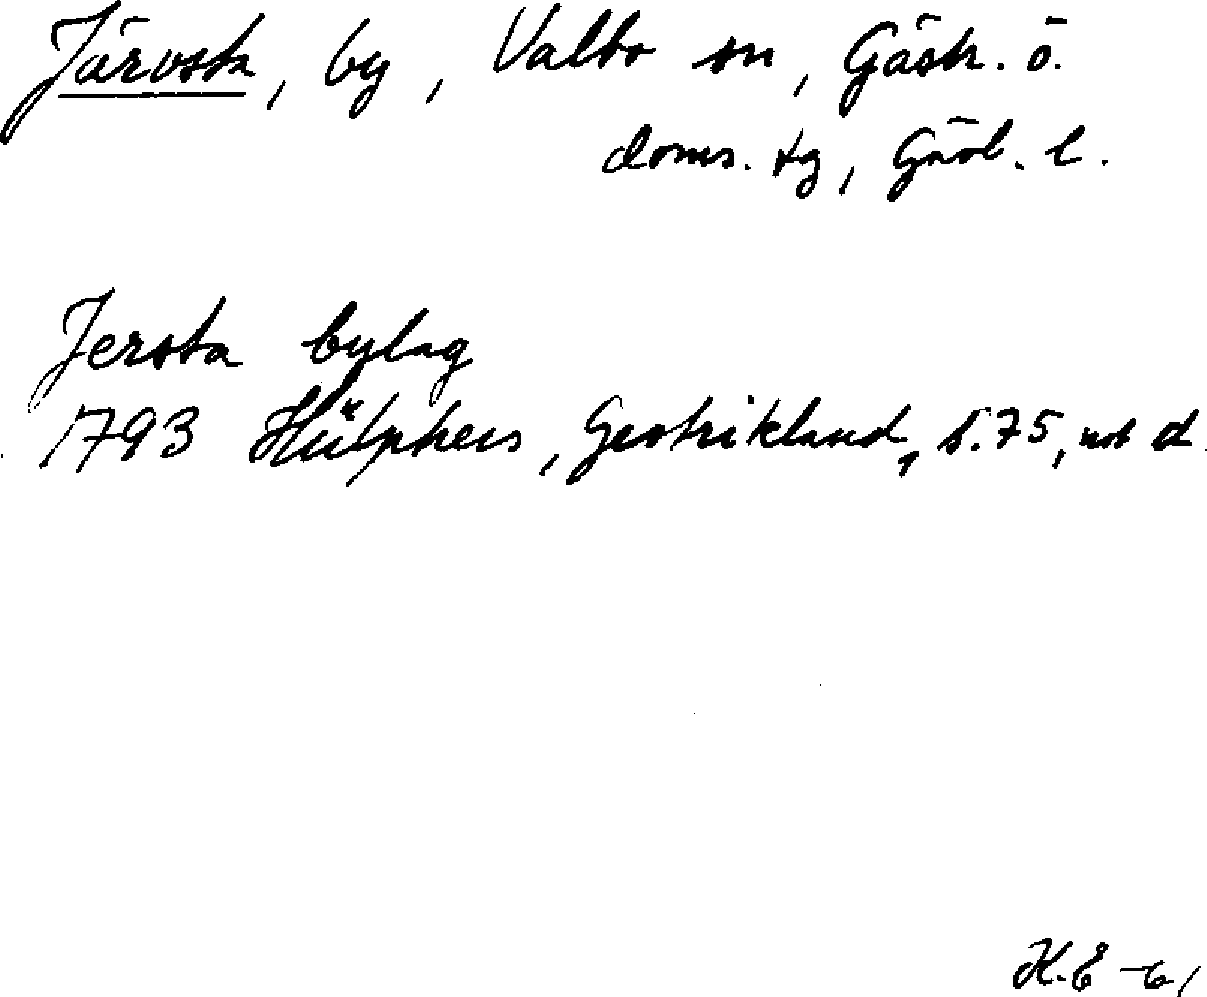 Järvsta, by, Valbo sn, Gästr. ö.
doms. tg, Gävl. l.
Jersta bylag
1793 Hülphers, Gestrikland, s. 75, not d.
K.E -61